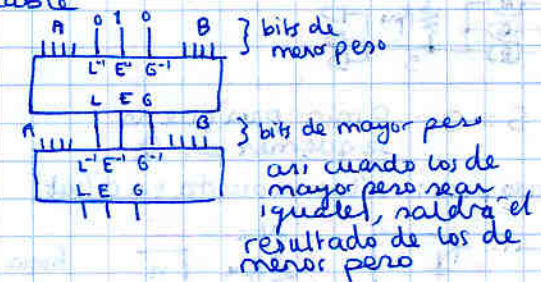 able
A 0 1 0 B } bits de
menor peso
L⁻¹ E⁻¹ G⁻¹
L E G
A B } bits de mayor peso
L⁻¹ E⁻¹ G⁻¹
L E G
asi cuando los de
mayor peso sean
iguales, saldrá el
resultado de los de
menor peso